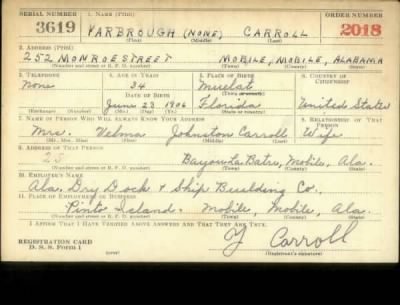 SERIAL NUMBER 1. NAME (Print) ORDER NUMBER
3619 YARBROUGH (NONE) CARROLL 2018
(First) (Middle) (Last)
2. ADDRESS (Print)
252 MONROE STREET MOBILE, MOBILE, ALABAMA
(Number and street or R. F. D. number) (Town) (County) (State)
3. TELEPHONE 4. AGE IN YEARS 5. PLACE OF BIRTH 6. COUNTRY OF CITIZENSHIP
None 34 Mulat
DATE OF BIRTH (Town or county)
June 23 1906 Florida United States
(Exchange) (Number) (Mo.) (Day) (Yr.) (State or country)
7. NAME OF PERSON WHO WILL ALWAYS KNOW YOUR ADDRESS 8. RELATIONSHIP OF THAT PERSON
Mrs. Velma Johnston Carroll Wife
(Mr., Mrs., Miss) (First) (Middle) (Last)
9. ADDRESS OF THAT PERSON
Bayou La Batre, Mobile, Ala.
(Number and street or R. F. D. number) (Town) (County) (State)
10. EMPLOYER'S NAME
Ala. Dry Dock & Ship Building Co.
11. PLACE OF EMPLOYMENT OR BUSINESS
Pinto Island. Mobile, Mobile, Ala.
(Number and street or R. F. D. number) (Town) (County) (State)
I AFFIRM THAT I HAVE VERIFIED ABOVE ANSWERS AND THAT THEY ARE TRUE.
REGISTRATION CARD
D. S. S. Form 1
Y Carroll
(Registrant's signature)